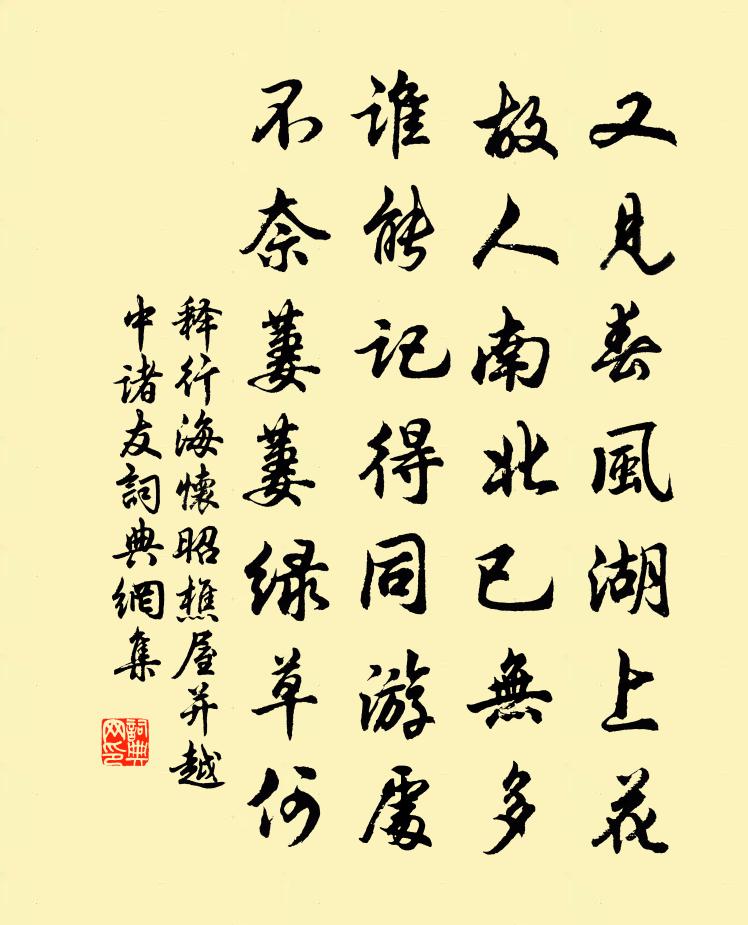 又见春風湖上花
故人南北已無多
谁能记得同游處
不奈萋萋绿草何
释行海懷昭樵屋并越
中诸友詞典網集
詞典网印